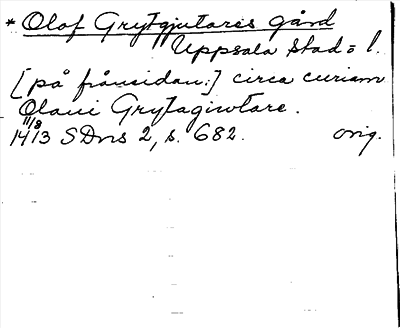 * Olof Grytgjutares gård
Uppsala stad = l.
[på frånsidan:] circa curiam
Olaui Grytagiwtare.
11/8
1413 SDns 2, s. 682. orig.